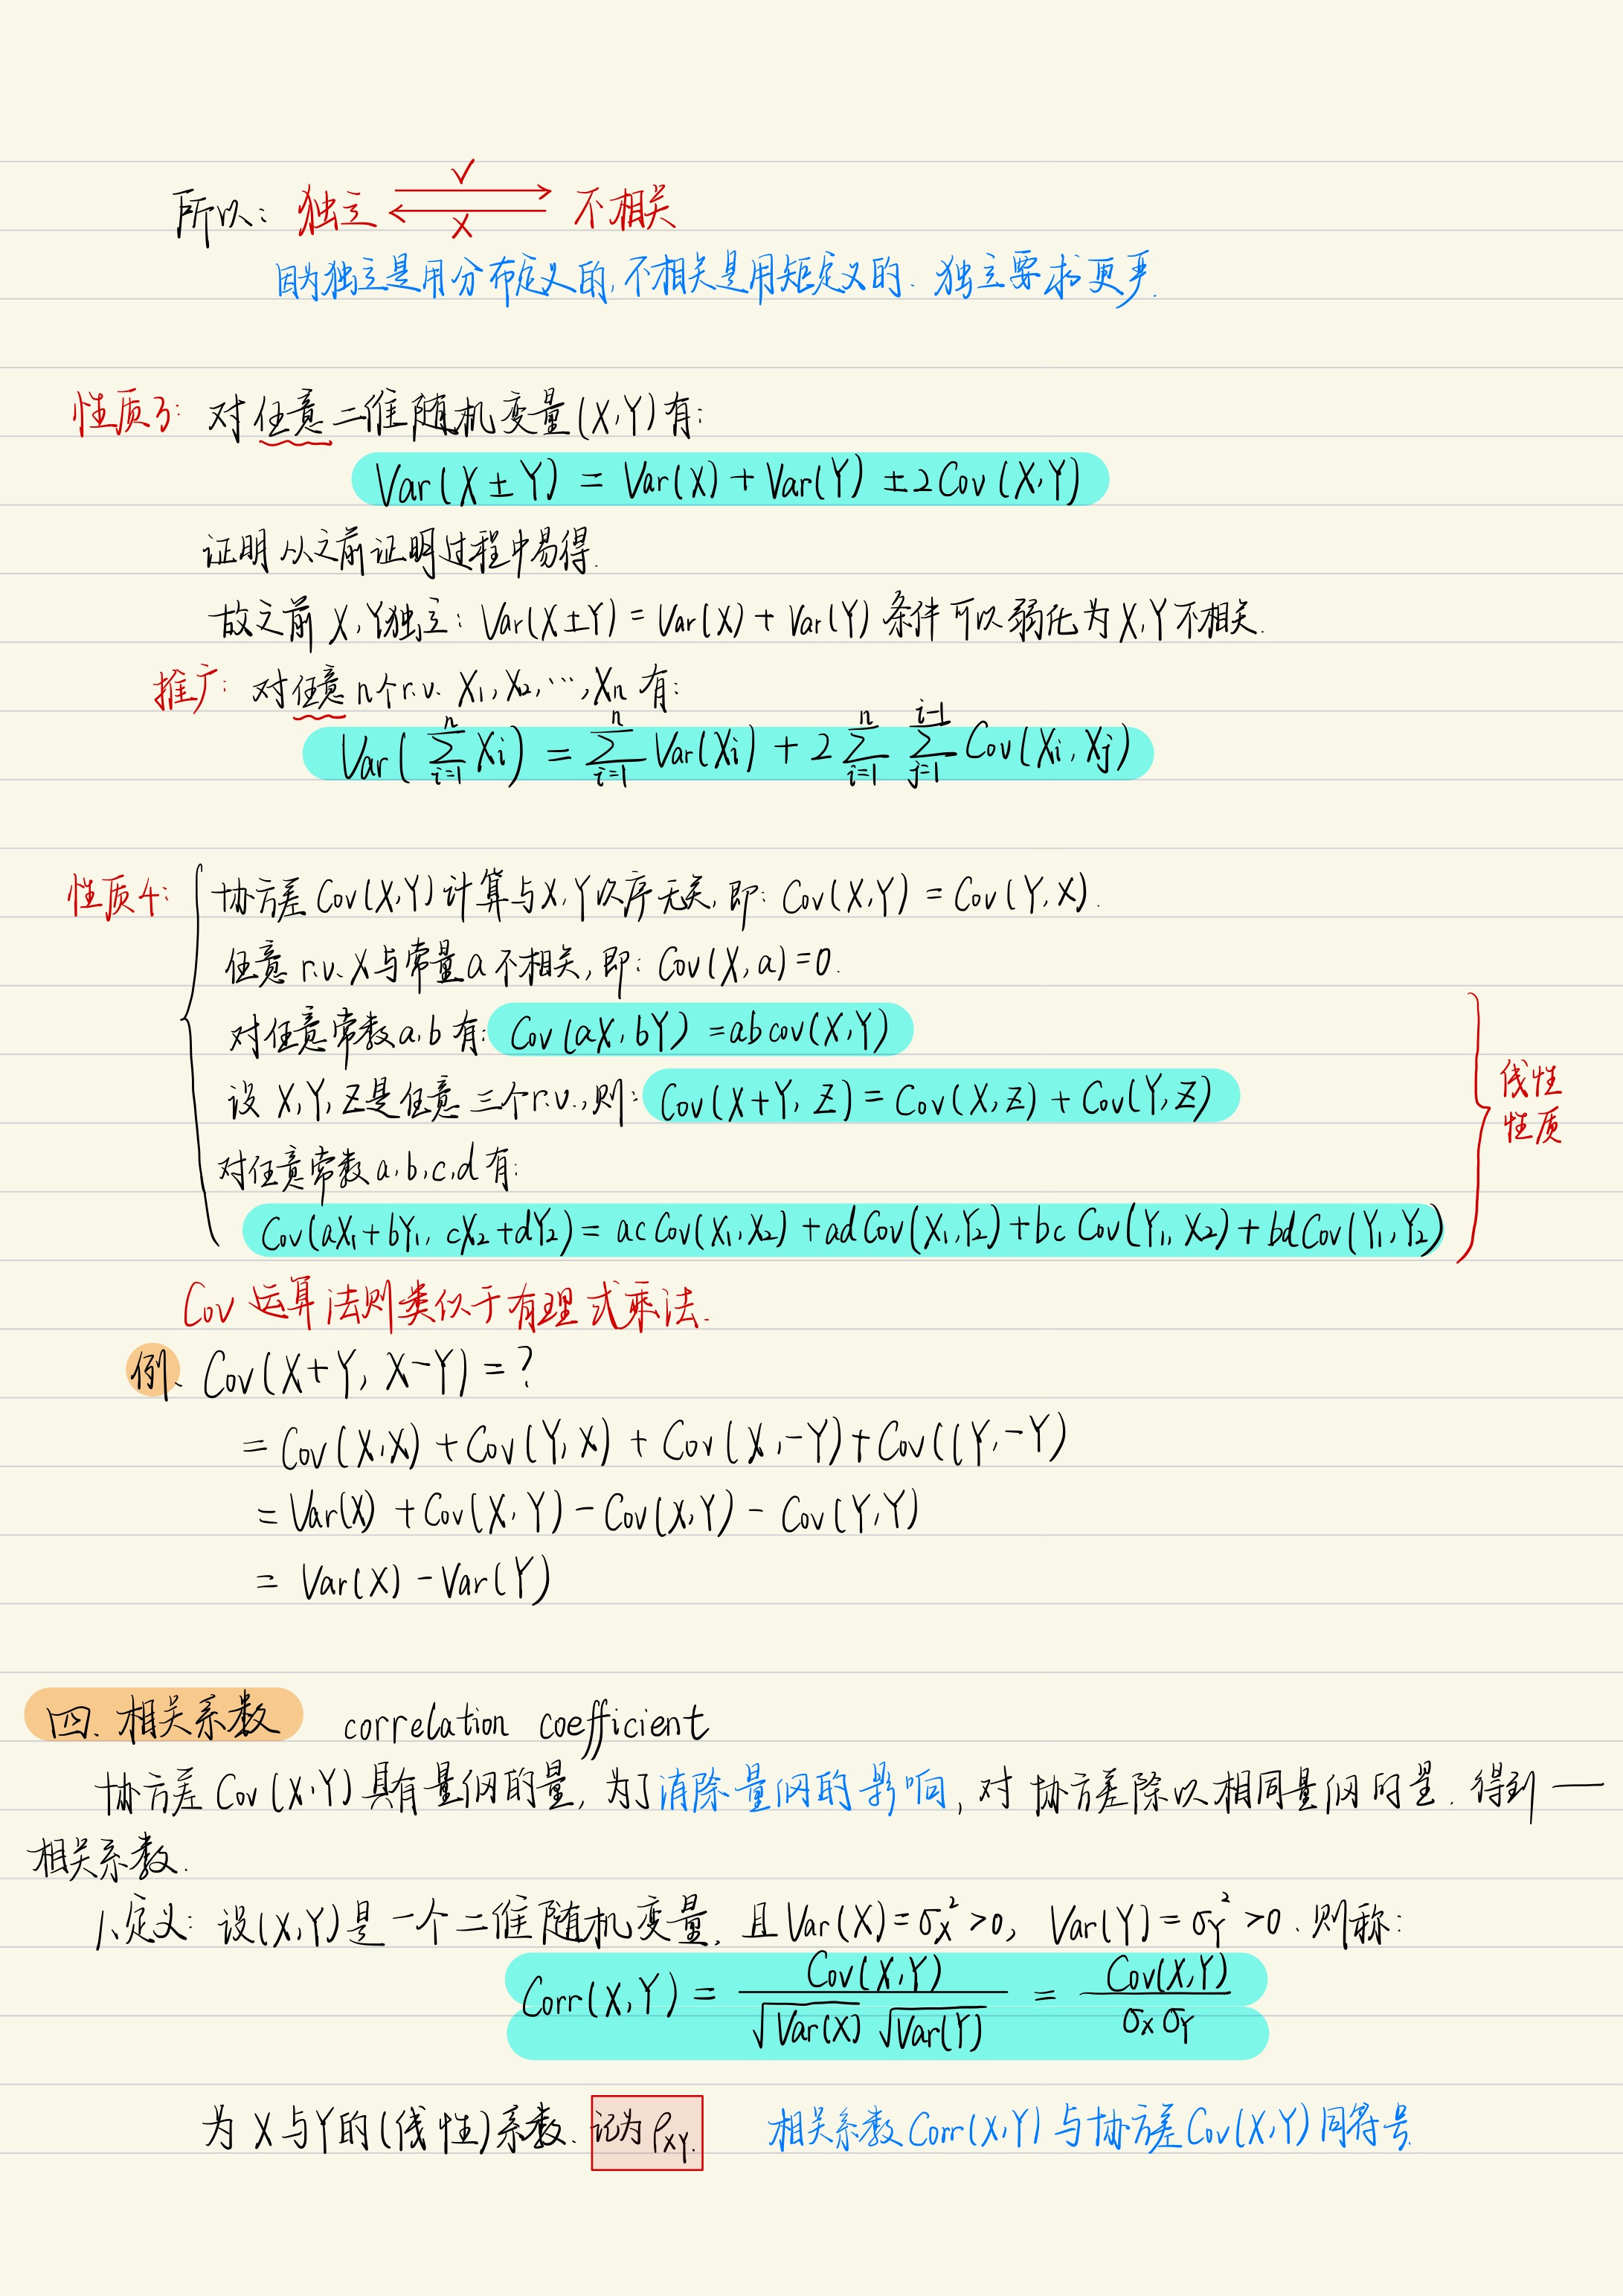 所以: 独立 ⇄ 不相关
√
×
因为独立是用分布定义的, 不相关是用矩定义的. 独立要求更严.
性质3: 对任意二维随机变量(X,Y)有:
Var(X±Y) = Var(X) + Var(Y) ± 2Cov(X,Y)
证明从之前证明过程中易得.
故之前 X,Y独立: Var(X±Y) = Var(X) + Var(Y) 条件可以弱化为 X,Y 不相关.
推广: 对任意 n个r.v. X₁, X₂, ⋯, Xn 有:
Var( ∑_{i=1}^{n} Xi ) = ∑_{i=1}^{n} Var(Xi) + 2 ∑_{i=1}^{n} ∑_{j=1}^{i-1} Cov(Xi, Xj)
性质4: 协方差 Cov(X,Y) 计算与X,Y次序无关, 即: Cov(X,Y) = Cov(Y,X).
任意 r.v. X与常量a 不相关, 即: Cov(X,a)=0.
对任意常数a,b 有: Cov(aX, bY) = ab cov(X,Y)
设 X,Y,Z是任意三个r.v.,则: Cov(X+Y, Z) = Cov(X,Z) + Cov(Y,Z)
线性
性质
对任意常数 a,b,c,d 有:
Cov(aX₁+bY₁, cX₂+dY₂) = ac Cov(X₁,X₂) + ad Cov(X₁,Y₂) + bc Cov(Y₁, X₂) + bd Cov(Y₁,Y₂)
Cov 运算法则类似于有理式乘法.
例、Cov(X+Y, X-Y) = ?
= Cov(X,X) + Cov(Y,X) + Cov(X,-Y) + Cov((Y,-Y)
= Var(X) + Cov(X,Y) - Cov(X,Y) - Cov(Y,Y)
= Var(X) - Var(Y)
四. 相关系数 correlation coefficient
协方差 Cov(X,Y) 具有量纲的量, 为了消除量纲的影响, 对协方差除以相同量纲的量. 得到 —
相关系数.
1、定义: 设(X,Y)是一个二维随机变量, 且 Var(X)=σ_X²>0, Var(Y)=σ_Y²>0. 则称:
Corr(X,Y) = Cov(X,Y) / (√Var(X) √Var(Y)) = Cov(X,Y) / (σ_X σ_Y)
为 X 与Y的(线性)系数. 记为 ρ_XY. 相关系数 Corr(X,Y) 与协方差 Cov(X,Y) 同符号.